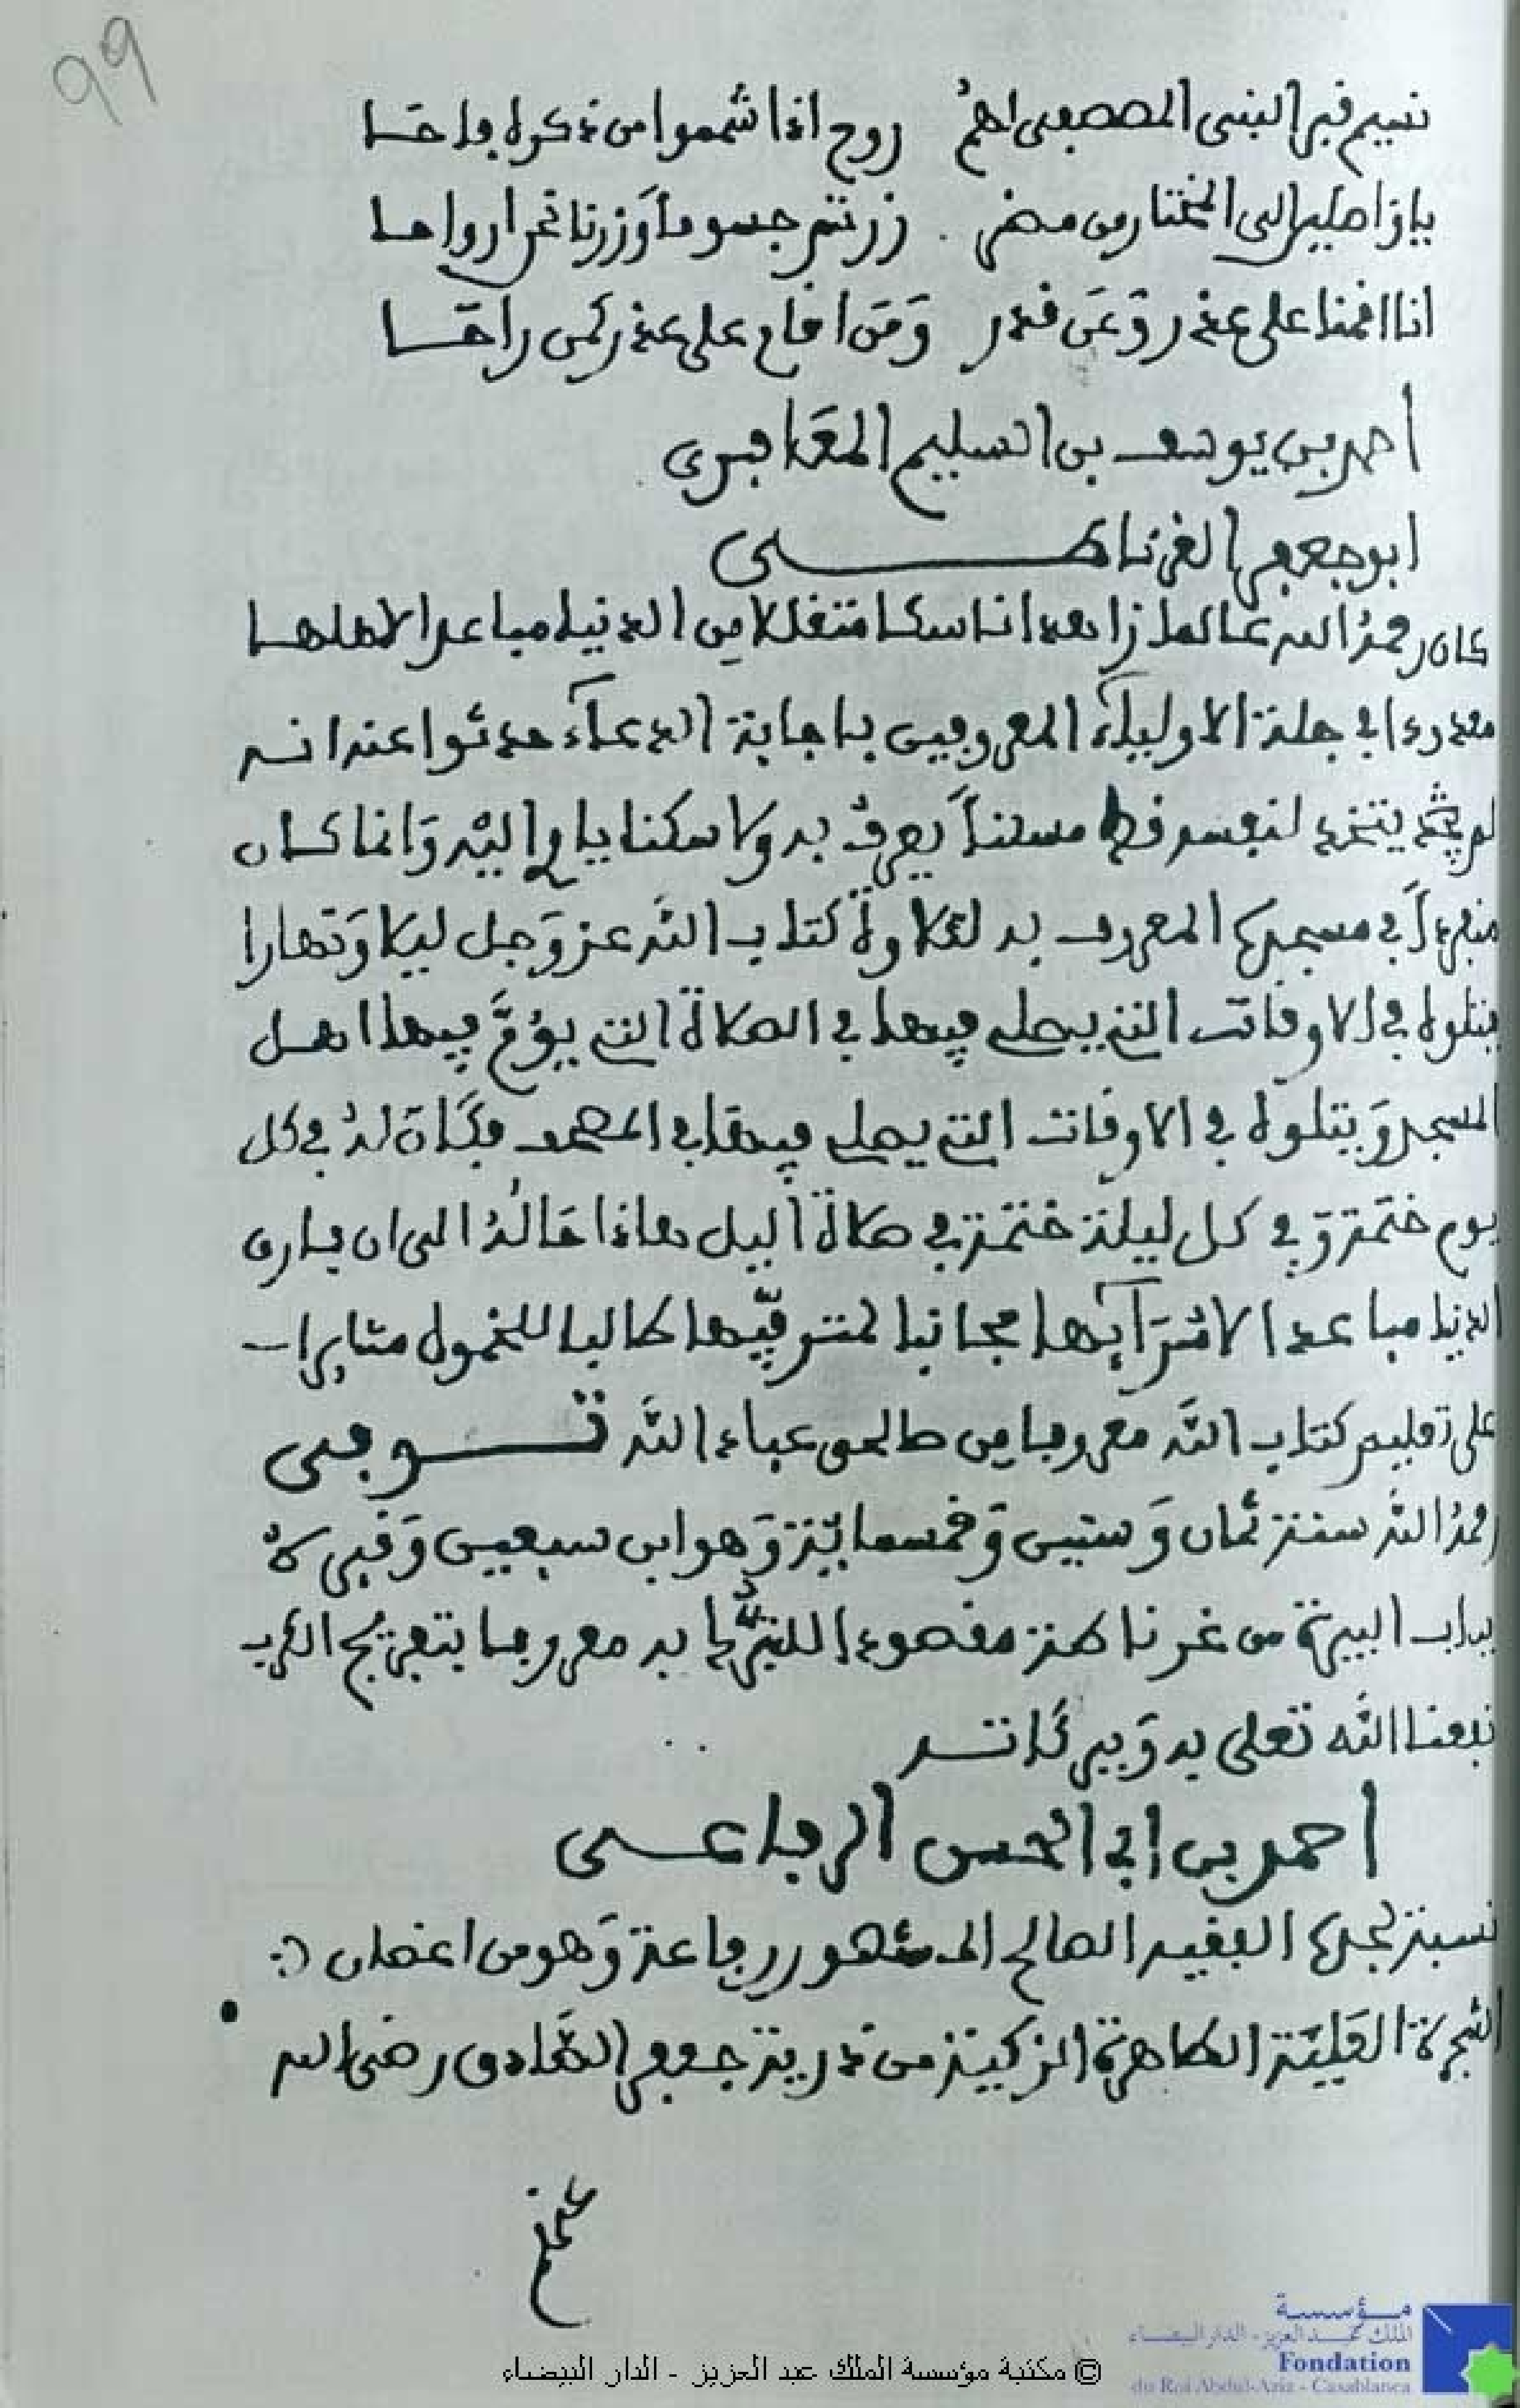 99
نسيم قبر النبي المصطفى لهم روح اذا شموا من ذكراه فاحا
يا واصلين الى المختار من مضر زرتم جسوما وزرنا نحن ارواحا
انا اقمنا على عذر وعن قدر ومن اقام على عذر كمن راحا
احمد بن يوسف بن السليم المعافري
ابو جعفر الغرناطي
كان رحمه الله عالما زاهدا ناسكا متقللا من الدنيا مباعدا لاهلها
معدودا في جلة الاولياء المعروفين باجابة الدعاء حدثوا عنه انه
لم يتخذ لنفسه قط مسكنا يعرف به ولا سكنا ياوي اليه وانما كان
منفردا في مسجده المعروف به لتلاوة كتاب الله عز وجل ليلا ونهارا
يتلوه في الاوقات التي يصلي فيها في الصلاة التي يؤم فيها اهل
المسجد ويتلوه في الاوقات التي يصلي فيها في المصحف فكان له في كل
يوم ختمة وفي كل ليلة ختمة في صلاة اليل هاذا حاله الى ان فارق
الدنيا مباعدا لاشرآبها مجانبا لمترفيها طالبا للخمول مثابرا
على تعليم كتاب الله معروفا من صالحي عباد الله توفي
رحمه الله سنة ثمان وستين وخمسمائة وهو ابن سبعين وقبره
بباب البيرة من غرناطة مقصودا للتبرك به معروفا بتفريج الكرب
نفعنا الله تعلى به وببركاته
احمد بن ابي الحسن الرفاعي
نسبة لجده الفقيه الصالح المشهور رفاعة وهو من اغصان
الشجرة العلية الطاهرة الزكية من ذرية جعفر الصادق رضي الله
عنه
مؤسسة
الملك عبد العزيز - الدار البيضاء
Fondation
du Roi Abdul-Aziz - Casablanca
© مكتبة مؤسسة الملك عبد العزيز - الدار البيضاء